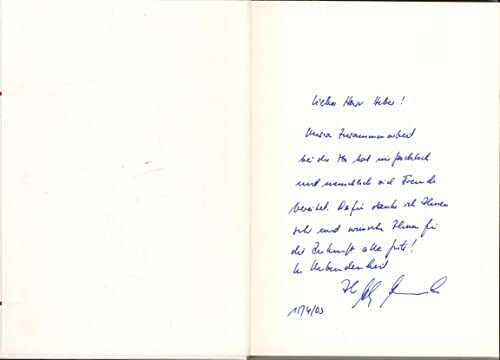 Lieber Herr Weber!
Unsere Zusammenarbeit
bei der hat mir fachlich
und menschlich viel Freude
bereitet. Dafür danke ich Ihnen
sehr und wünsche Ihnen für
die Zukunft alles Gute!
In Verbundenheit
Ihr
15/4/03